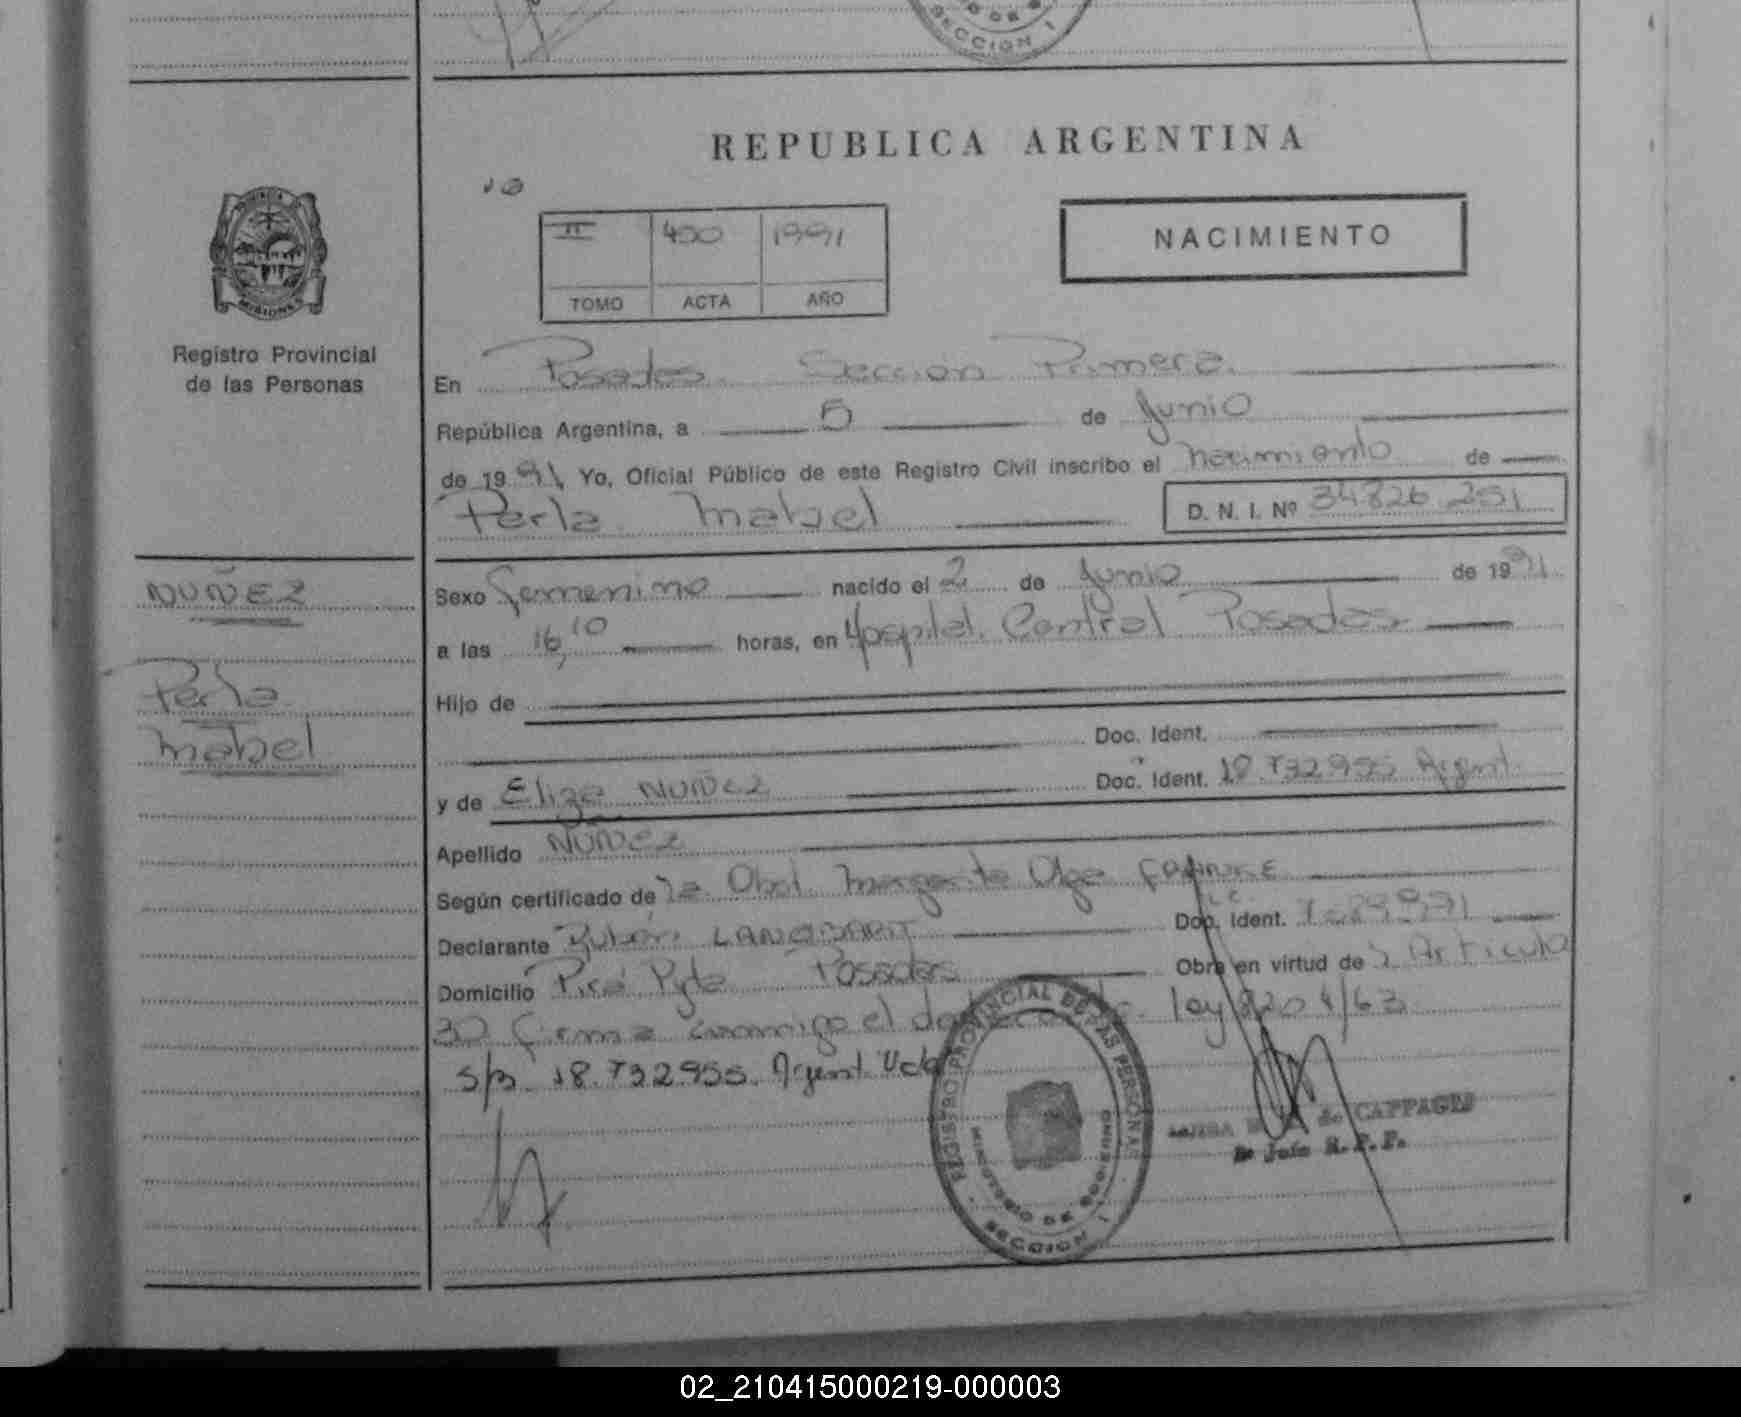 SECCION I
REPUBLICA ARGENTINA
PROVINCIA
MISIONES
Registro Provincial
de las Personas
II 400 1991
TOMO ACTA AÑO
NACIMIENTO
En Posadas. Sección Primera.
República Argentina, a 5 de Junio
de 1991 Yo, Oficial Público de este Registro Civil inscribo el nacimiento de
Perla Mabel D. N. I. Nº 34826.251
NUÑEZ
Perla
Mabel
Sexo femenino nacido el 2 de Junio de 1991
a las 16,10 horas, en Hospital Central Posadas
Hijo de
Doc. Ident.
y de Eliza NUÑEZ Doc. Ident. 18.732955 Argent.
Apellido NUÑEZ
Según certificado de la Obst. Margarita Olga
Declarante Rubén Doc. Ident.
Domicilio Pirá Pyta Posadas Obra en virtud de Articulo
30 firma conmigo el declarante. ley 8204/63
s/b 18.732955. Argent. Vale
REGISTRO PROVINCIAL DE LAS PERSONAS
SECCION I
de CAPPAGLI
Jefe R. P. P.
02_210415000219-000003